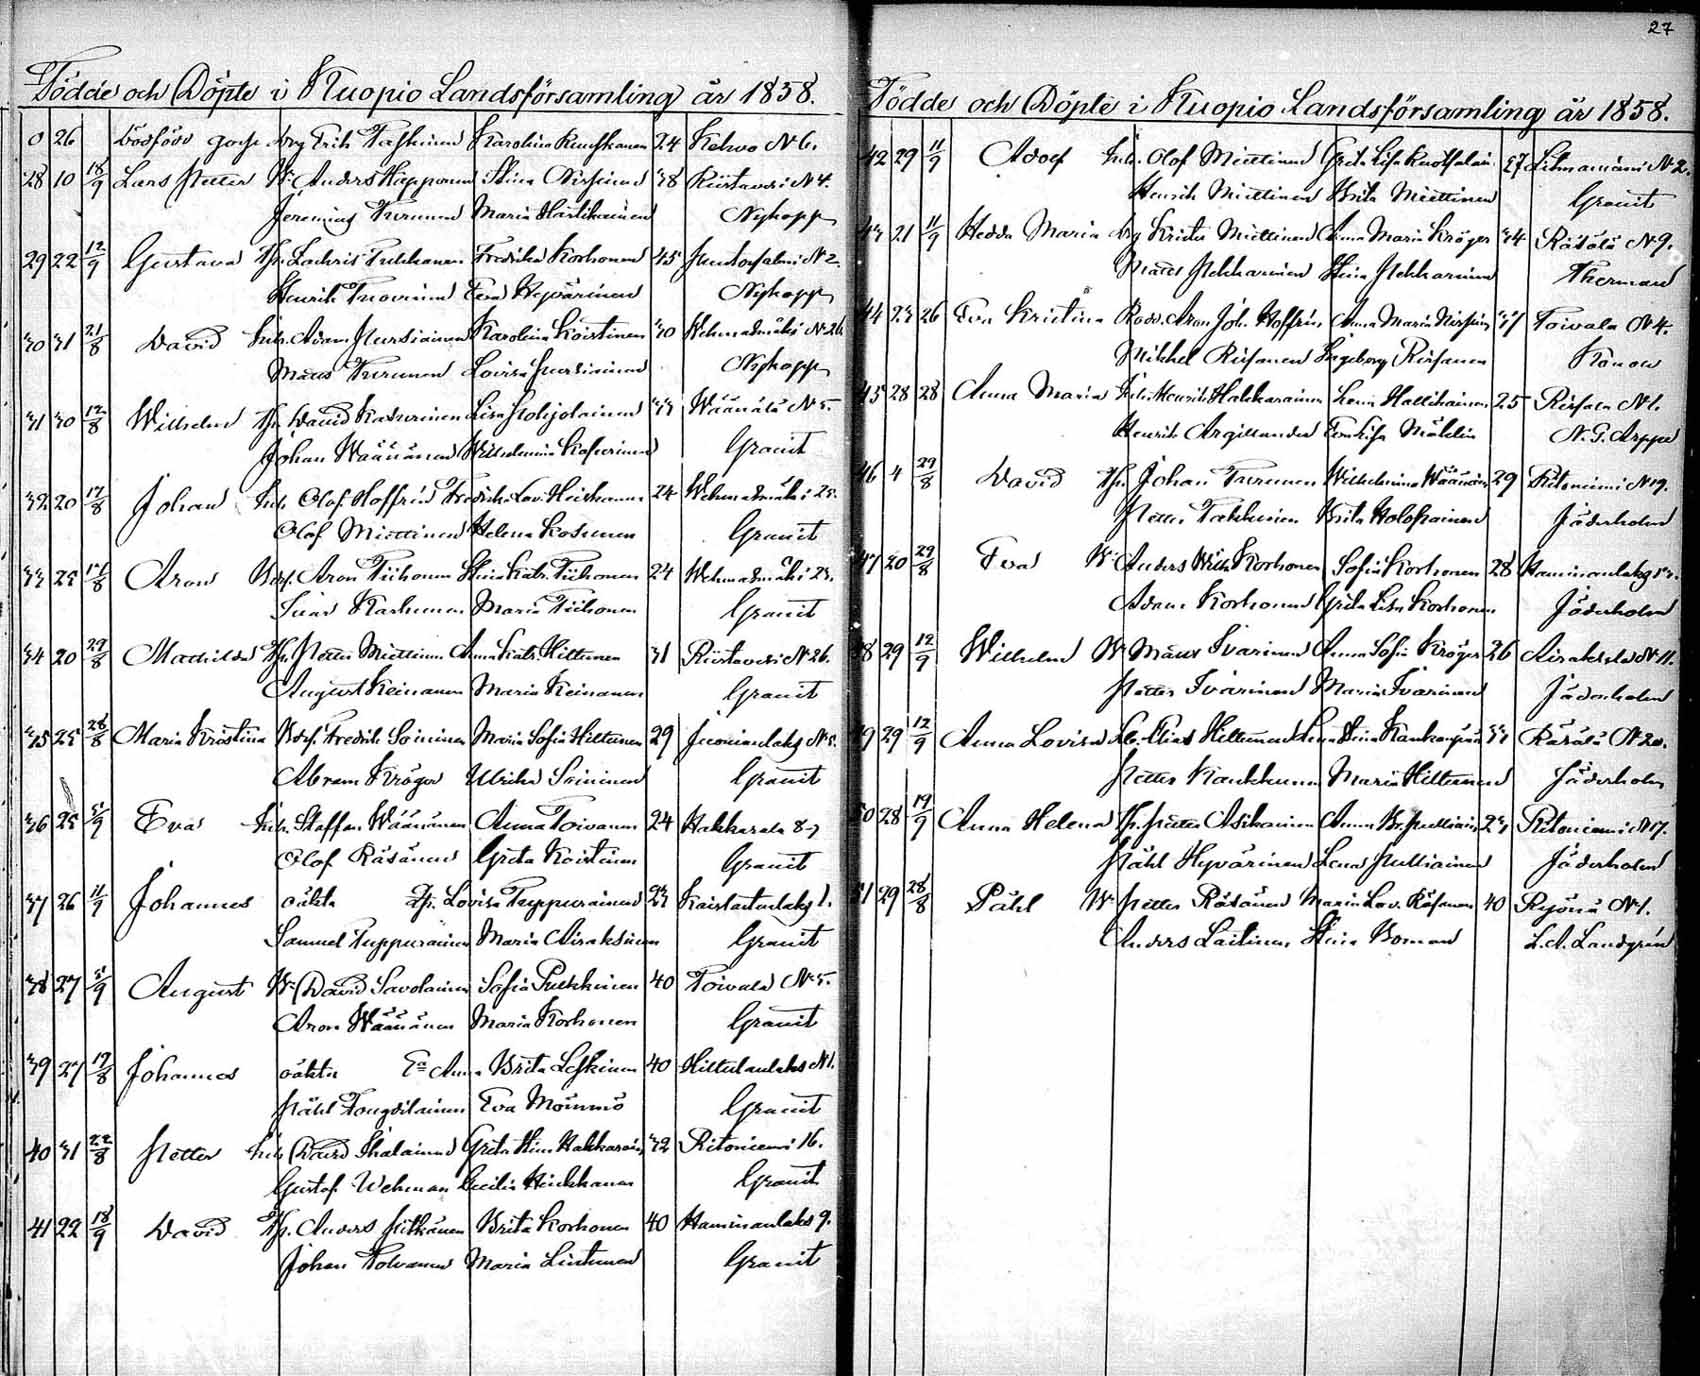 Födde och Döpte i Kuopio Landsförsamling år 1858.
0 26 dödfödd gosse Drg Erik Karolina 24 Kehvo N 6.
28 10 18/9 Lars Petter Anders Happonen Stina 38 Riistavesi N 4.
Jeremias Turunen Maria Hartikainen Nykopp
29 22 12/9 Gustava Hf. Zachris Pulkkanen Fredrika Korhonen 45 N 2.
Henrik Eva Hyvärinen Nykopp
30 31 21/8 David Inh. Adam Pursiainen Karolina Koistinen 30 Wehmasmäki N 26.
Mats Turunen Lovisa Pursiainen Nykopp
31 30 12/8 Wilhelm Hf. David Kasurinen Lisa Pohjolainen 33 Wäänälä N 5.
Johan Wäänänen Wilhelmina Kasurinen Granit
32 20 17/8 Johan Inh. Olof Hoffrén Fredrika Lov. Heiskanen 24 Wehmasmäki 25.
Olof Miettinen Helena Kosunen Granit
33 25 17/8 Aron Bdf. Aron Tiihonen Stina Katr. Tiihonen 24 Wehmasmäki 23.
Ivar Karhunen Maria Tiihonen Granit
34 20 29/8 Mathilda Hf. Petter Miettinen Anna Katr. Hiltunen 31 Riistavesi N 26.
August Keinanen Maria Keinanen Granit
35 25 28/8 Maria Kristina Bdf. Fredrik Soininen Maria Sofia Hiltunen 29 Juonionlaks N 5.
Abram Kröger Ulrika Soininen Granit
36 25 5/9 Eva Inh. Staffan Wäänänen Anna Toivanen 24 Hakkarala 8
Olof Räsänen Greta Koistinen Granit
37 26 11/9 Johannes oäkta Pig. Lovisa Tuppurainen 23 Kaislastenlaks 1.
Samuel Tuppurainen Maria Airaksinen Granit
38 27 5/9 August David Savolainen Sofia Pulkkinen 40 Toivala N 5.
Aron Wäänänen Maria Korhonen Granit
39 27 17/8 Johannes oäkta Ea Anna Brita Leskinen 40 Hiltulanlaks N 1.
Påhl Eva Mönnmö Granit
40 31 22/8 Petter Inh. David Ihalainen Greta Stina Hakkarain 32 Ritoniemi 16.
Gustaf Wehman Cecilia Heiskanen Granit
41 22 18/9 David Hf. Anders Pitkänen Brita Korhonen 40 Haminanlaks 9.
Johan Tolvanen Maria Lintunen Granit
27
Födde och Döpte i Kuopio Landsförsamling år 1858.
42 29 11/9 Adolf Inh. Olof Miettinen Greta Lisa 27 N 2.
Henrik Miettinen Brita Miettinen Granit
43 21 11/9 Hedda Maria Drg Krister Miettinen Anna Maria Kröger 34 Räsälä N 9.
Mats Pekkarinen Stina Pekkarinen Therman
44 23 26 Eva Kristina Aron Joh. Hoffrén Anna Maria 37 Toivala N 4.
Mikkel Rissanen Ingeborg Rissanen Konow
45 28 28 Anna Maria Inh. Henrik Hakkarainen Lena Hallikainen 25 Rissala N 1.
Henrik Argillander Eva Lisa Mählin N. G. Arppe
46 4 29/8 David Hf. Johan Turunen Wilhelmina Wäänän 29 Ritoniemi N 19.
Petter Takkunen Brita Holopainen Jäderholm
47 20 29/8 Eva Anders Wilh. Korhonen Sofia Korhonen 28 Haminanlaks 13.
Adam Korhonen Greta Lisa Korhonen Jäderholm
48 29 12/9 Wilhelm Mats Ivarinen Anna Sofia Kröger 26 Airaksela N 11.
Petter Ivarinen Maria Ivarinen Jäderholm
49 29 12/9 Anna Lovisa Elias Hiltunen Stina 33 Räsälä N 20.
Petter Kaukkunen Maria Hiltunen Jäderholm
50 28 19/9 Anna Helena Hf. Petter Asikainen Anna Br. Pulliain 23 Ritoniemi N 17.
Påhl Hyvärinen Lena Pulliainen Jäderholm
51 29 28/8 Påhl Petter Räsänen Maria Lov. Räsänen 40 Ryönä N 1.
Anders Laitinen Stina Boman L. A. Landgrén